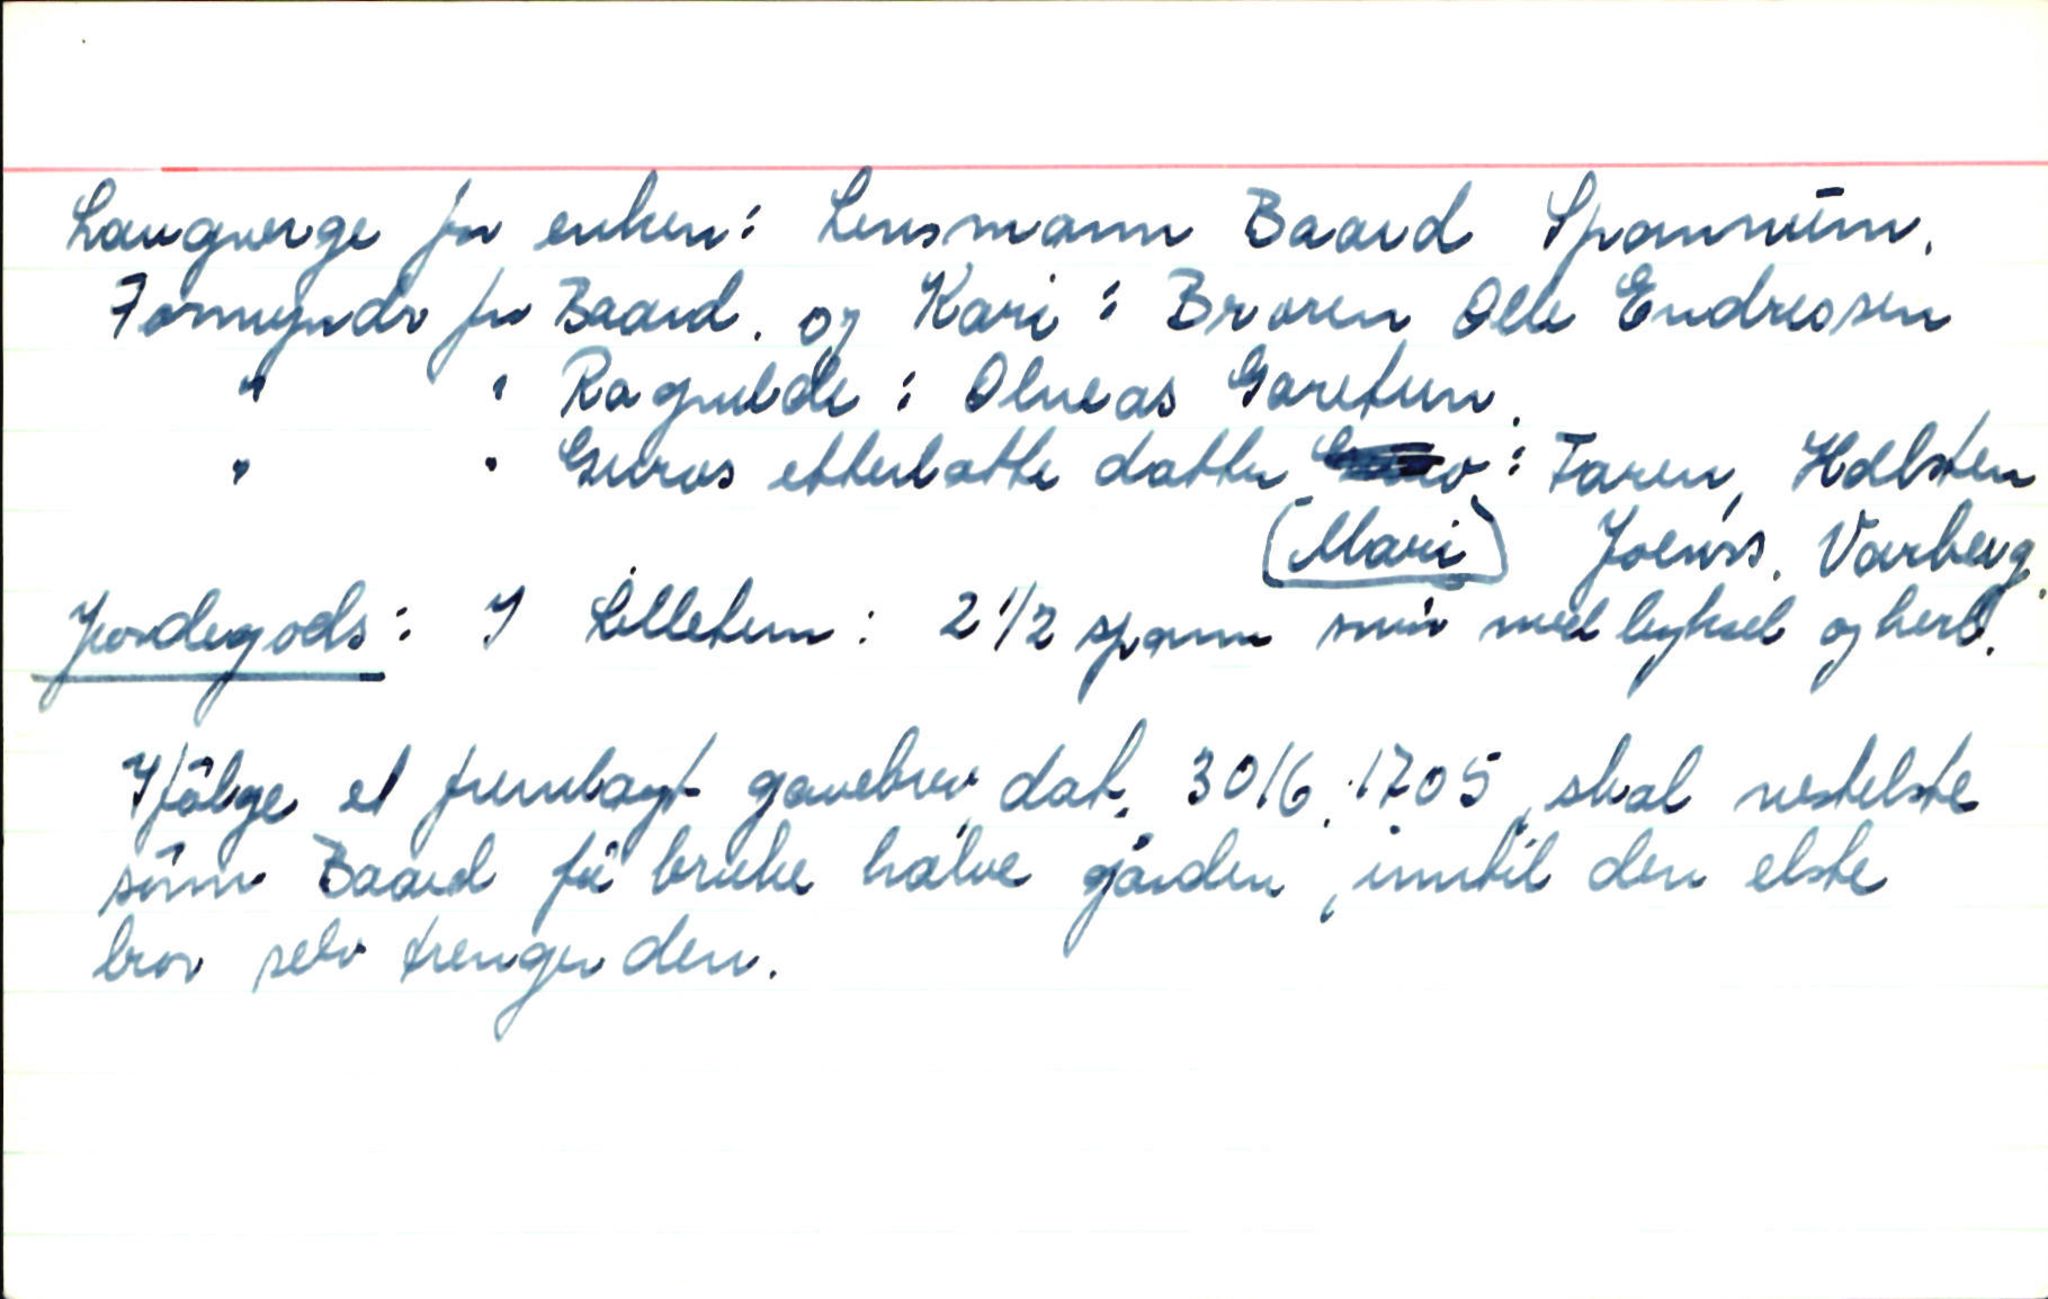 Laugverge for enken: Lensmann Baard Spannum.
Formynder for Baard. og Kari: Broren Olle Endressen
" " Ragnilde: Olneas Garetun.
" " Guros etterlatte datter : Faren, Halsten
(Mari) Joenss. Varberg.
Jordegods: I Lilletun: 2 1/2 spann smör med bygsel og herl.
Ifölge et fremlagt gavebrev, dat. 30/6. 1705, skal nestelste
sönn Baard få bruke halve gården, inntil den elste
bror selv trenger den.